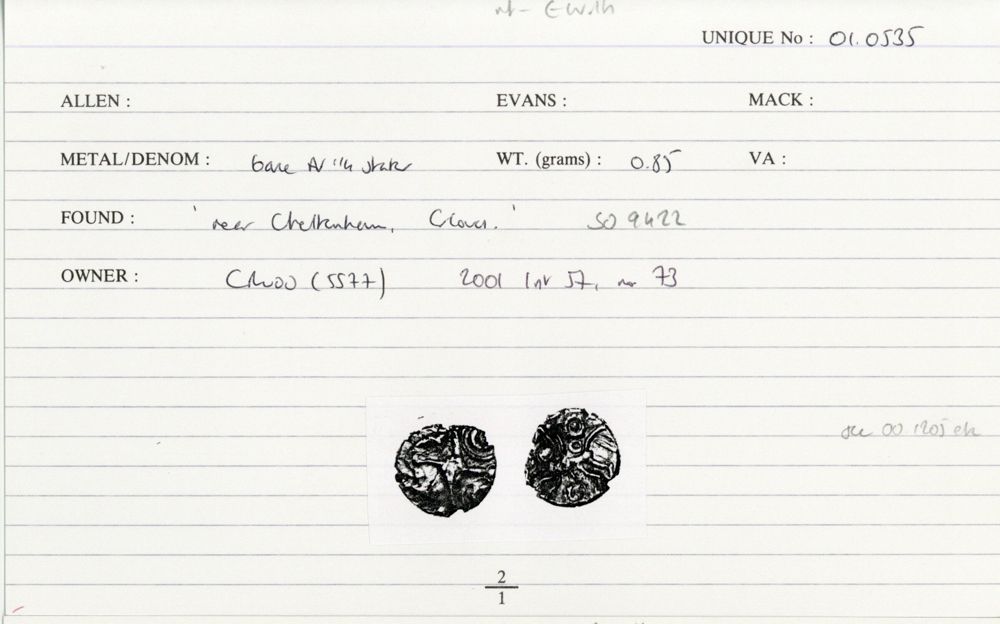 UNIQUE No : 01.0535
ALLEN : EVANS : MACK :
METAL/DENOM : base AV 1/4 stater WT. (grams) : 0.85 VA :
FOUND : 'near Cheltenham, Glouc.' SO 9422
OWNER : (5577) 2001 57, no 73
see 00.1205 etc
2
1